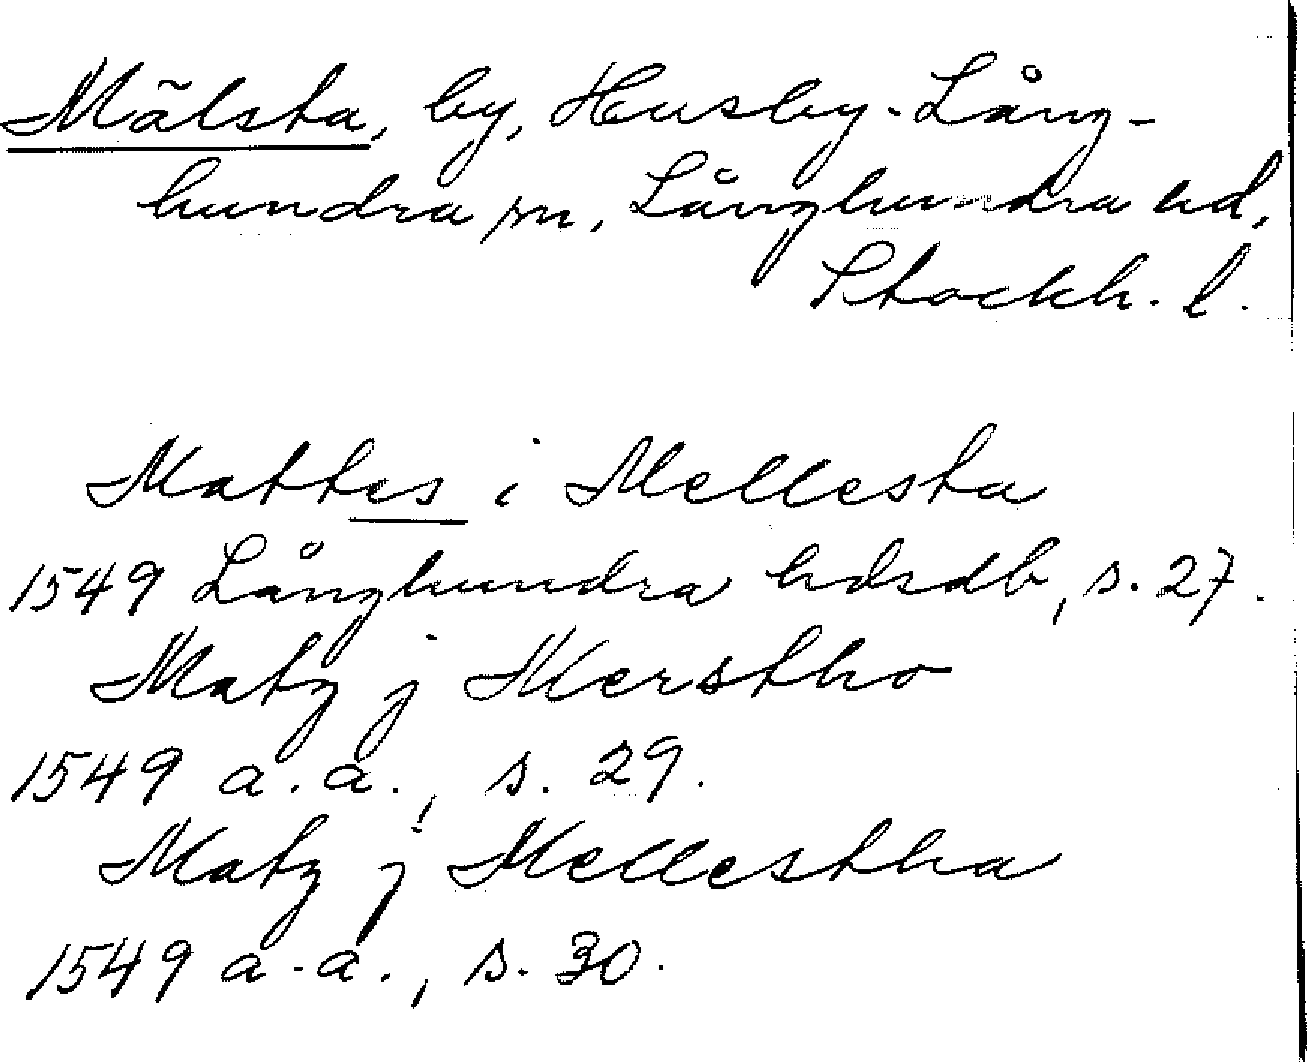 Mälsta, by, Husby-Lång-
hundra sn, Långhundra hd,
Stockh. l.
Mattes i Mellesta
1549 Långhundra hdsdb, s. 27.
Matz j Merstho
1549 a.a., s. 29.
Matz j Mellestha
1549 a.a., s. 30.